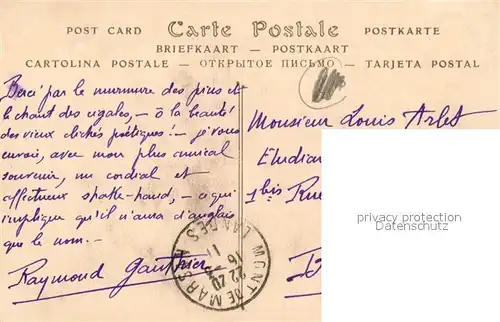 POST CARD Carte Postale POSTKARTE
BRIEFKAART — POSTKAART
CARTOLINA POSTALE — ОТКРЫТОЕ ПИСЬМО — TARJETA POSTAL
Bercé par le murmure des pins et
le chant des cigales, — ô la beauté
des vieux clichés poétiques! — je vous
envoie, avec mon plus amical
souvenir, un cordial et
affectueux shake-hand, — ce qui
n'implique qu'il n'aura d'anglais
que le nom. —
Raymond Gauthier
Monsieur Louis Arlet
Etudian
1bis Rue
MONT DE MARSAN
LANDES
privacy protection
ansichtskarten